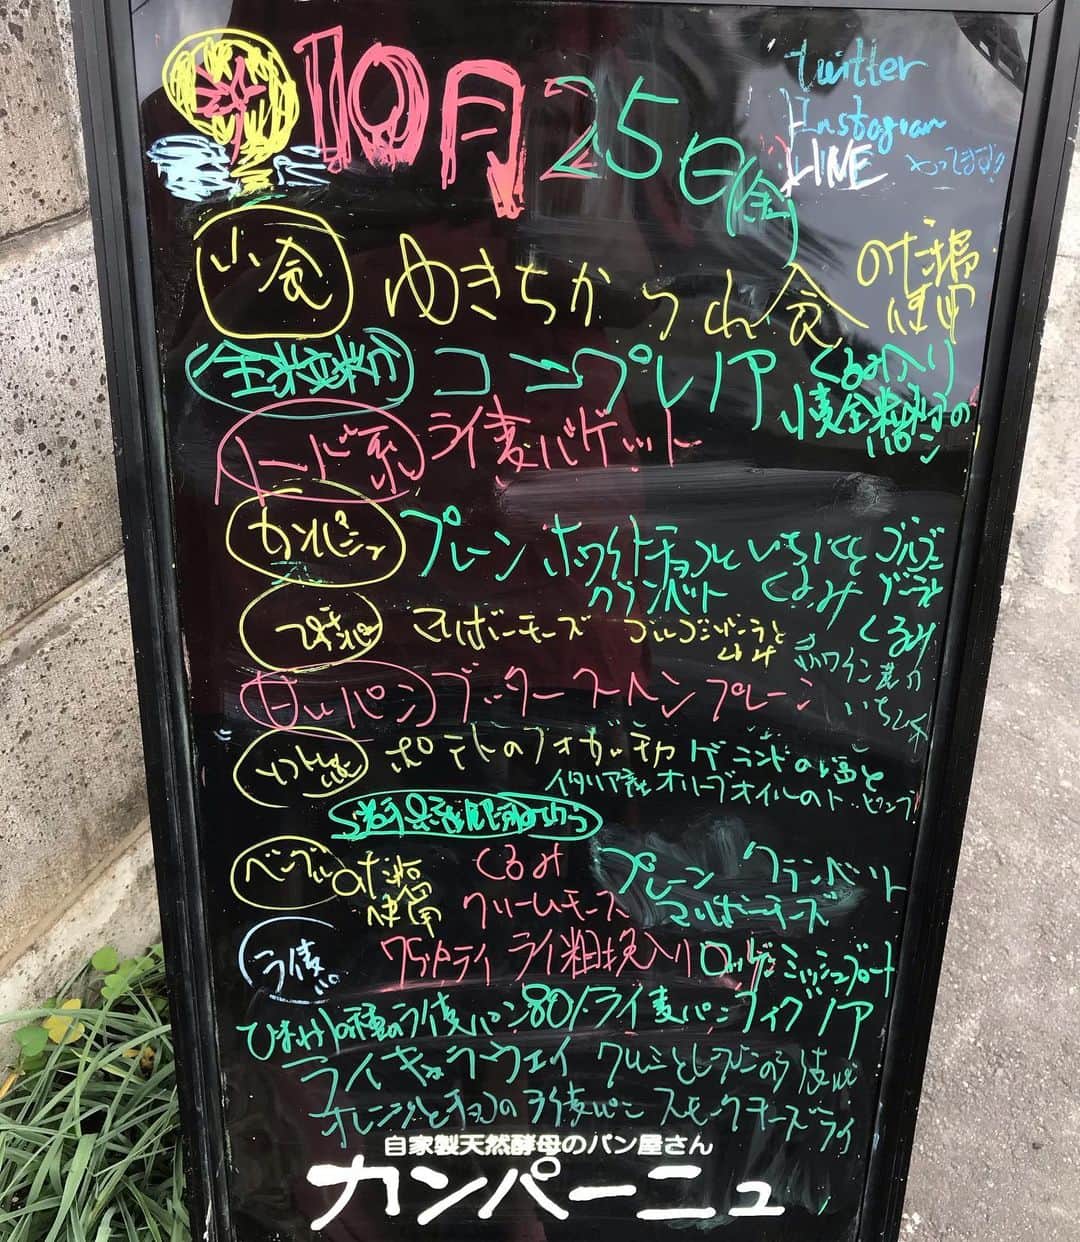 10月25日(金)
twitter
Instagram
LINE やってます!!
小食 ゆきちから 食
使用
全粒粉 コンプレノア くるみ入り
小麦全粒粉の
パン
ハード系 ライ麦バゲット
カンパーニュ プレーン ホワイトチョコと
クランベリー
いちじくと
くるみ
ゴルゴン
ゾーラと
くるみ
マリボーチーズ ゴルゴンゾーラと
くるみ
赤ワイン煮の
いちじく
甘いパン ブッターストーレン プレーン
ソフト ポテトのフォカッチャ ゲランドの塩と
イタリア産オリーブオイルのトッピング
ベーグル 使用 くるみ プレーン クランベリー
クリームチーズ マリボーチーズ
ライ麦 ライ粗挽入り ロッゲンミッシュブロート
ひまわりの種のライ麦パン 80%ライ麦パン フィグノア
ライキャラウェイ クルミとレーズンのライ麦パン
オレンジとチョコのライ麦パン スモークチーズライ
自家製天然酵母のパン屋さん
カンパーニュ